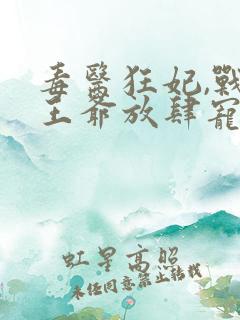 毒醫狂妃,戰
王爺放肆寵
虹星高照
未经同意禁止转载